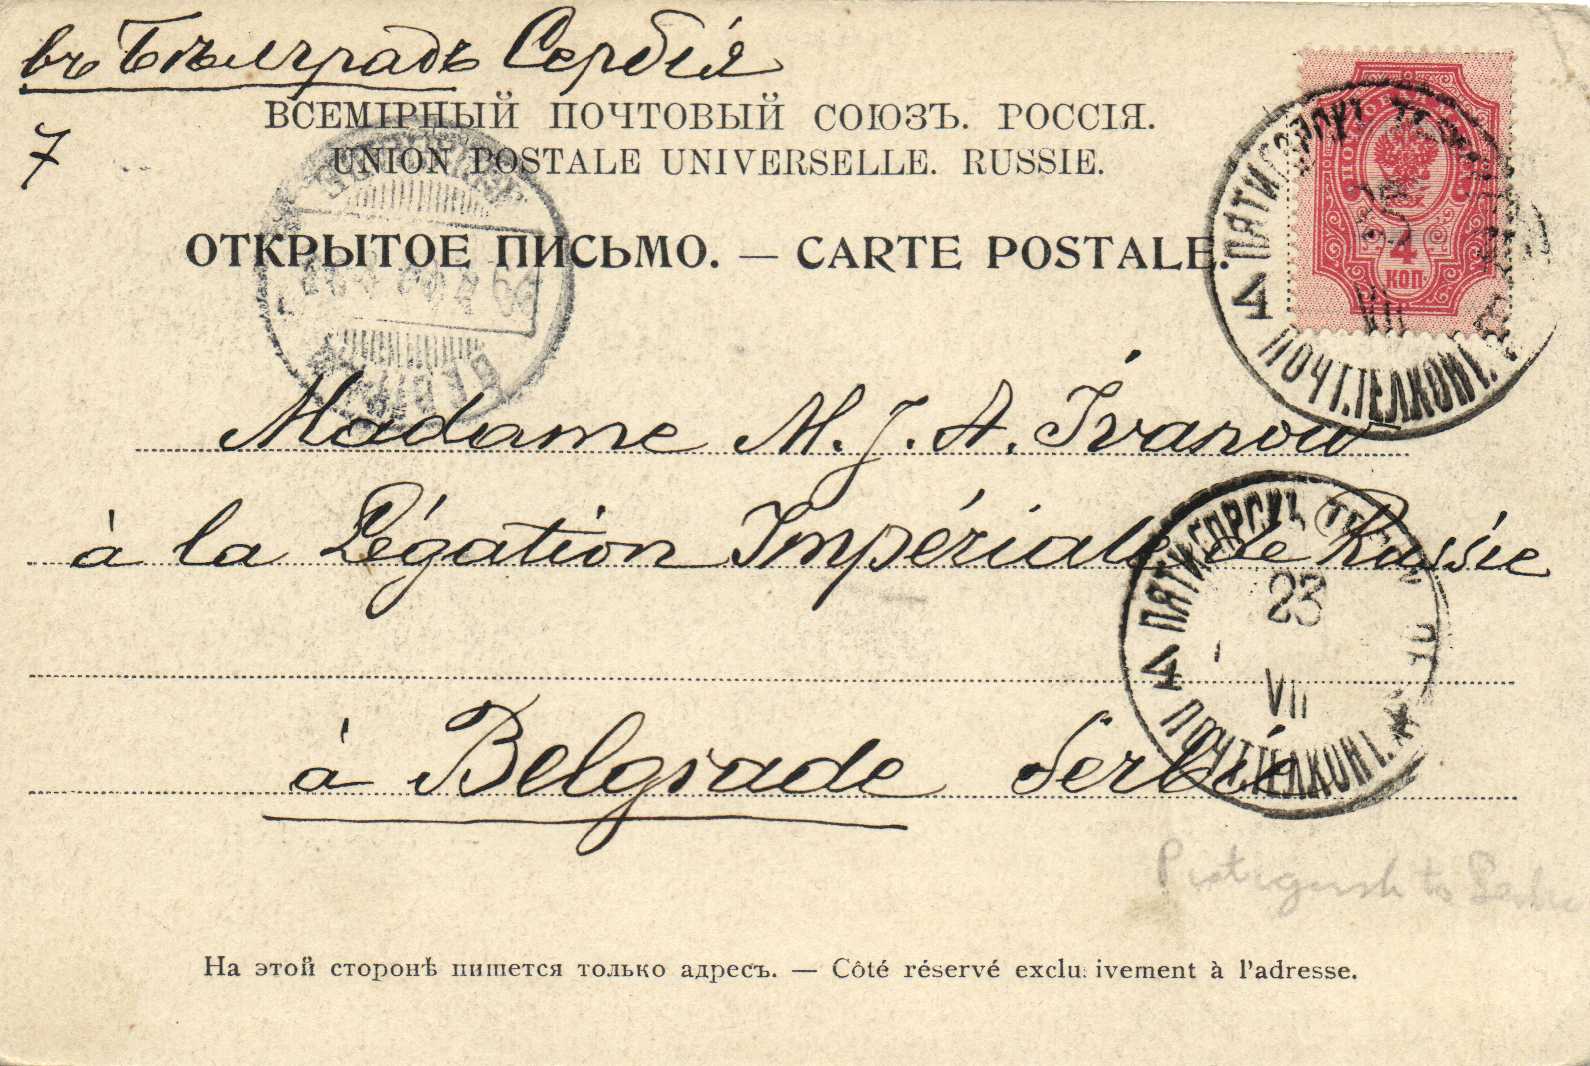 въ Бѣлградъ Сербія
7
ВСЕМІРНЫЙ ПОЧТОВЫЙ СОЮЗЪ. РОССІЯ.
UNION POSTALE UNIVERSELLE. RUSSIE.
ОТКРЫТОЕ ПИСЬМО. — CARTE POSTALE.
4
КОП.
ПЯТИГОРСКЪ
VII
4
ПОЧТ.ТЕЛ.КОНТ.
Madame M. J. A. Ivanow
à la Légation Impériale de Russie
ПЯТИГОРСКЪ
23
VII
4
ПОЧТ.ТЕЛ.КОНТ.
à Belgrade Serbie
to Serbia
На этой сторонѣ пишется только адресъ. — Côté réservé exclusivement à l'adresse.